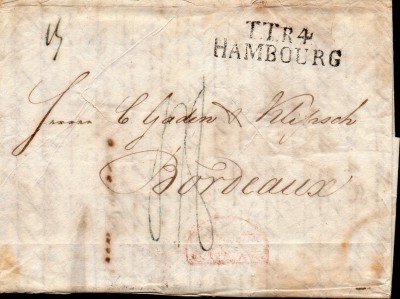 T.T.R.4
HAMBOURG
Herren C Gaden & Klipsch
Bordeaux